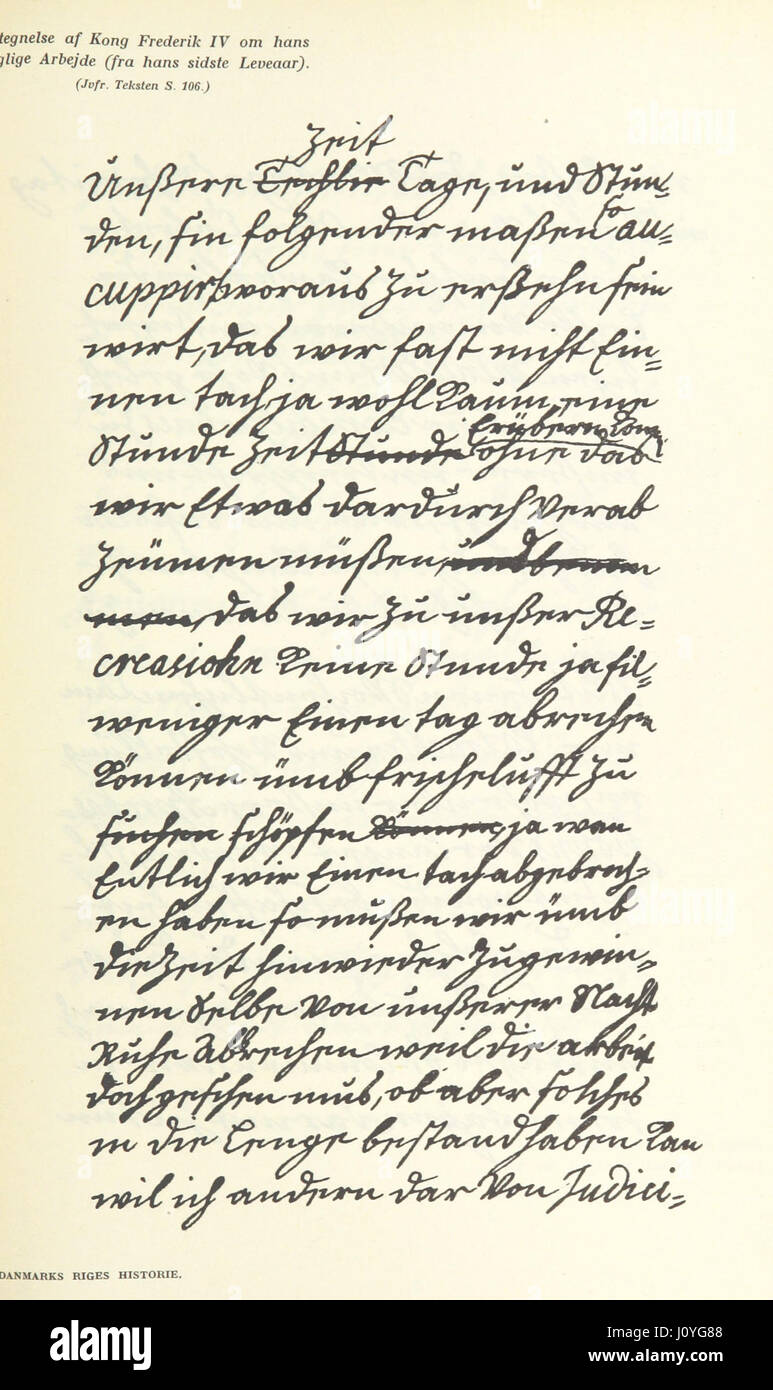 tegnelse af Kong Frederik IV om hans
glige Arbejde (fra hans sidste Leveaar).
(Jvfr. Teksten S. 106.)
Zeit
Unßere Techlie Tage, und Stun=
den, sin folgender maßen so au=
cuppirt voraus zu erßehn sein
wirt, das wir fast nicht Ein=
nen tach, ja wohl Kaum, eine
Erübern Kön
Stunde Zeit Stunde ohne das
wir Etwas dardurch verab
Zeümen müßen,
das wir zu unßer Re=
creasiohn Keine Stunde ja fil=
weniger Einen tag abrechen
Können ümb frische lufft zu
suchen schöpfen Können, ja wan
Entlich wir Einen tach abgebroch=
en haben so mußen wir ümb
die Zeit hinwieder Zugewin=
nen Selbe Von unßerer Nacht
Ruhe Abrechen weil die arbeit
doch geschen mus, ob aber solches
in die Lenge bestand haben Kan
wil ich andern dar Von Judici=
DANMARKS RIGES HISTORIE.
alamy
Image ID: J0YG88
www.alamy.com